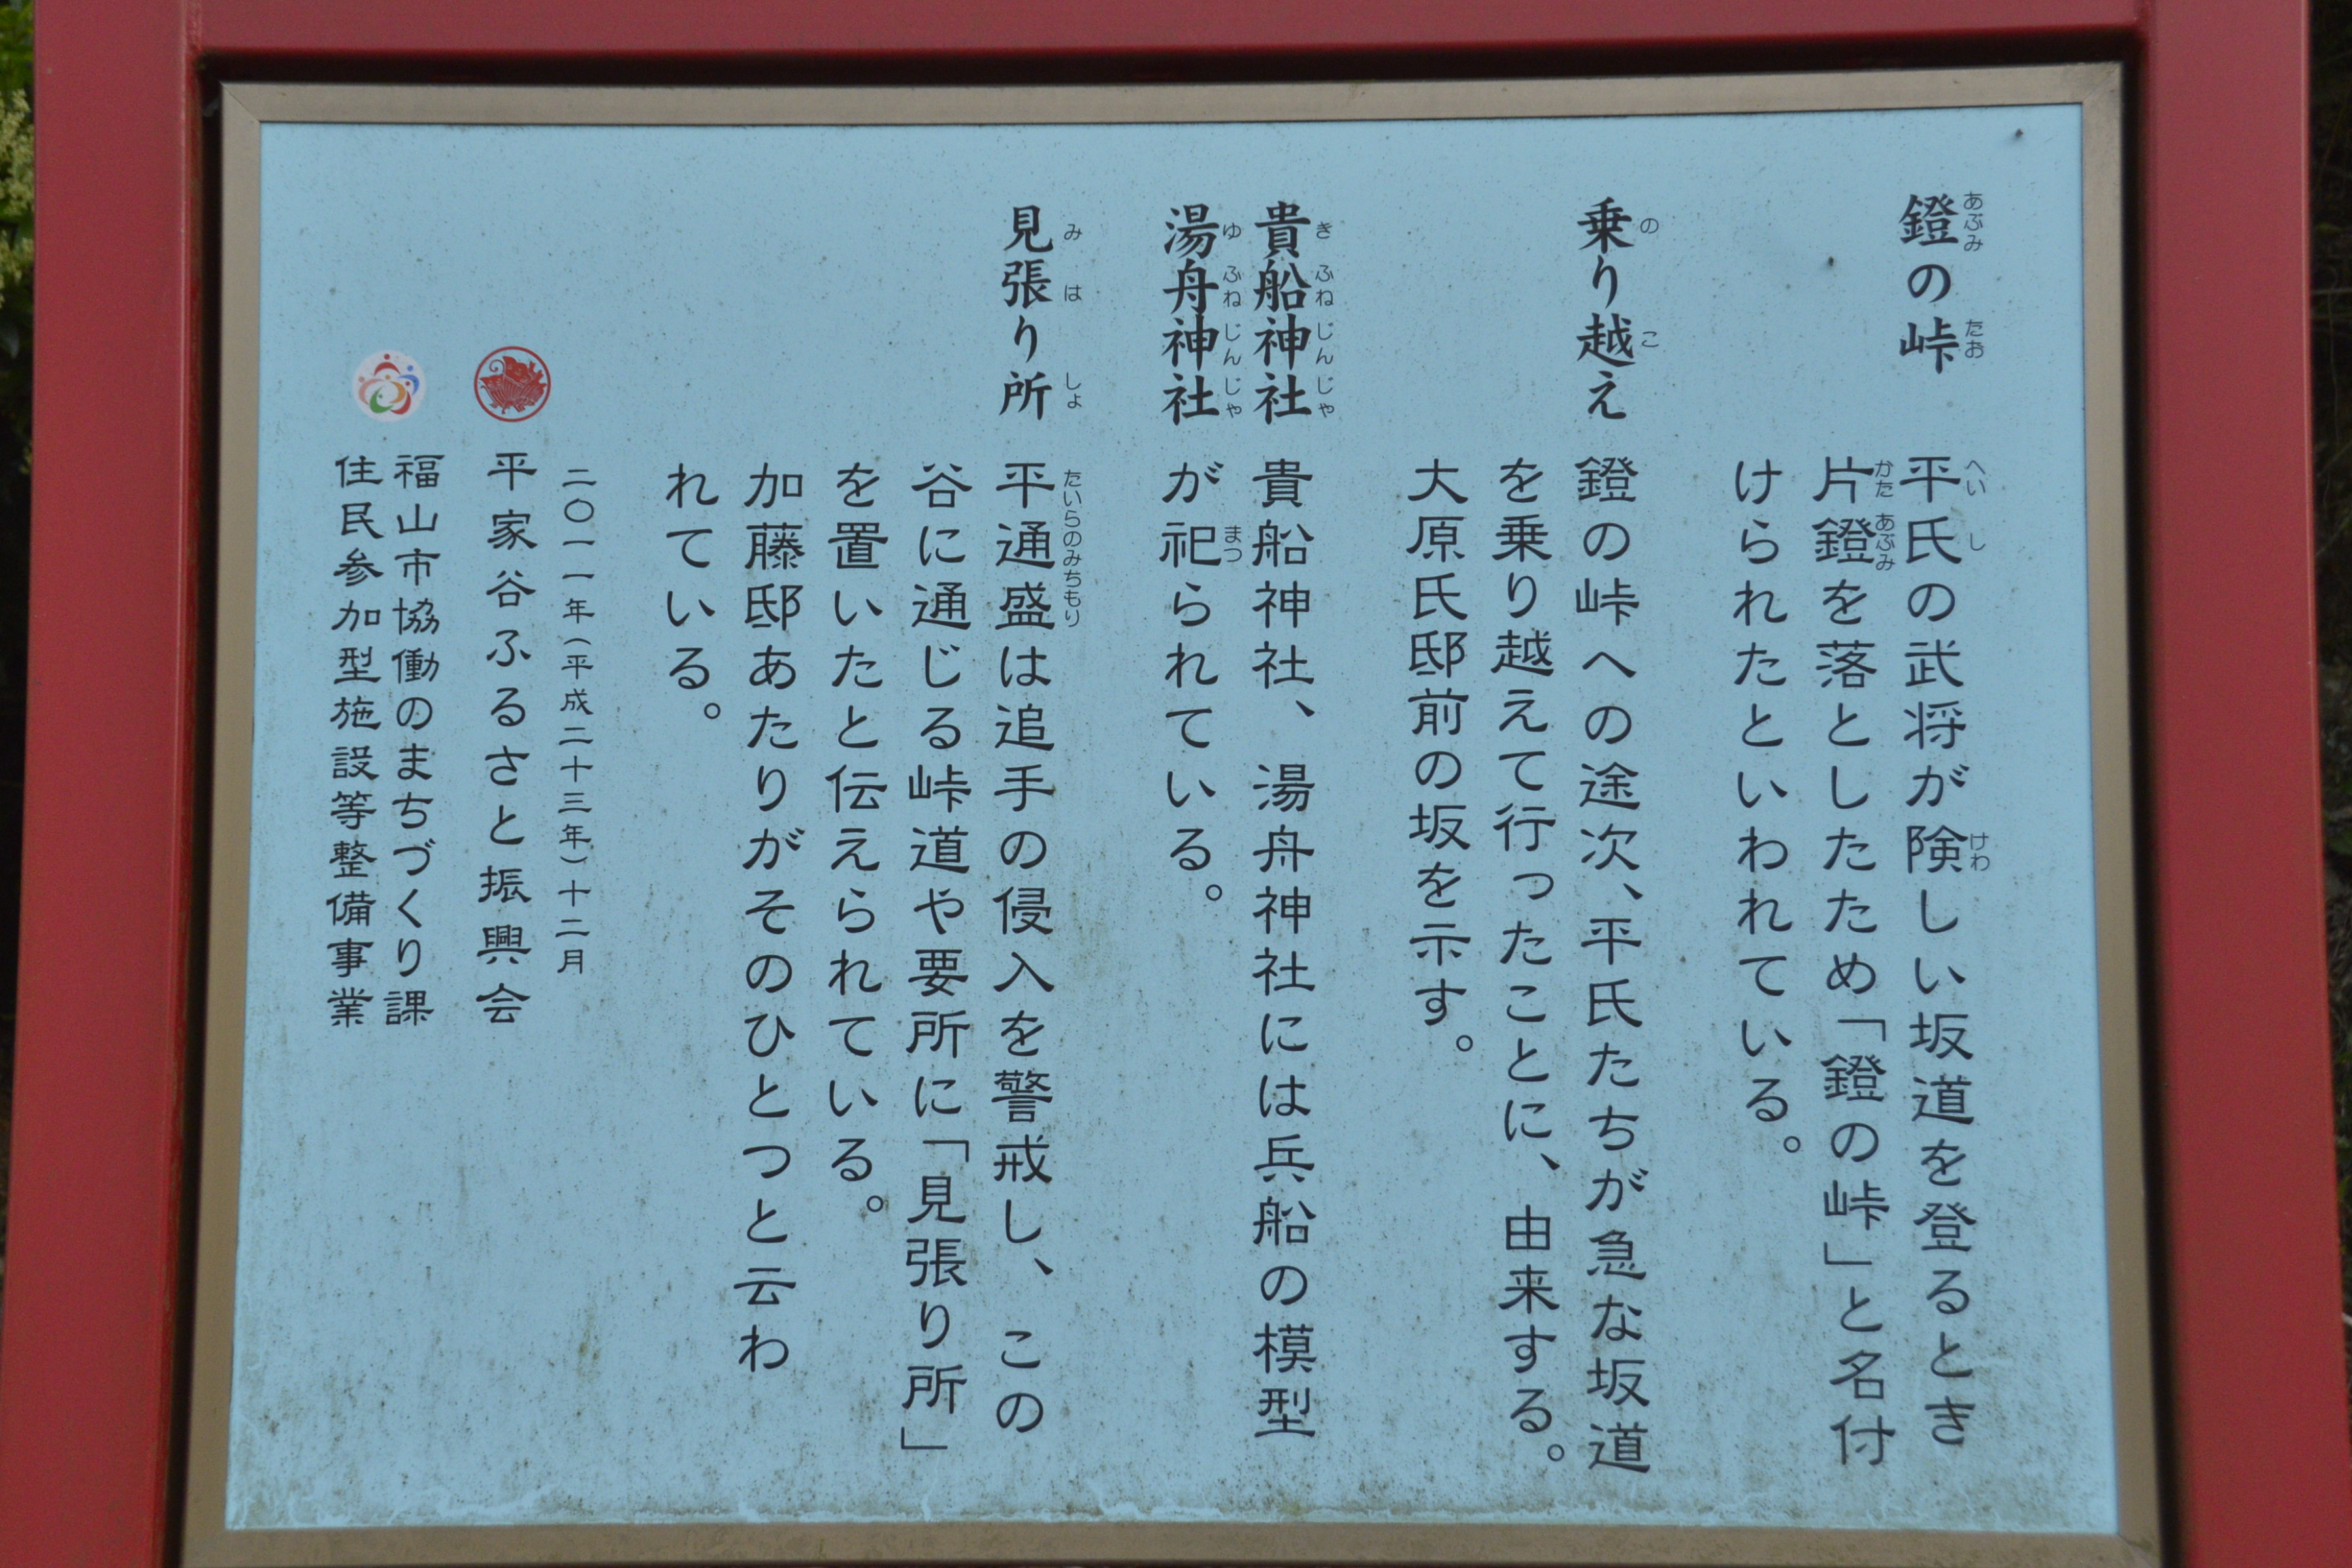 鐙の峠
平氏の武将が険しい坂道を登るとき
片鐙を落としたため「鐙の峠」と名付
けられたといわれている。
乗り越え
鐙の峠への途次、平氏たちが急な坂道
を乗り越えて行ったことに、由来する。
大原氏邸前の坂を示す。
貴船神社
湯舟神社
貴船神社、湯舟神社には兵船の模型
が祀られている。
見張り所
平通盛は追手の侵入を警戒し、この
谷に通じる峠道や要所に「見張り所」
を置いたと伝えられている。
加藤邸あたりがそのひとつと云わ
れている。
二〇一一年(平成二十三年)十二月
平家谷ふるさと振興会
福山市協働のまちづくり課
住民参加型施設等整備事業